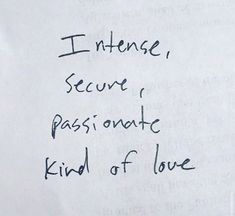 Intense,
secure,
passionate
kind of love